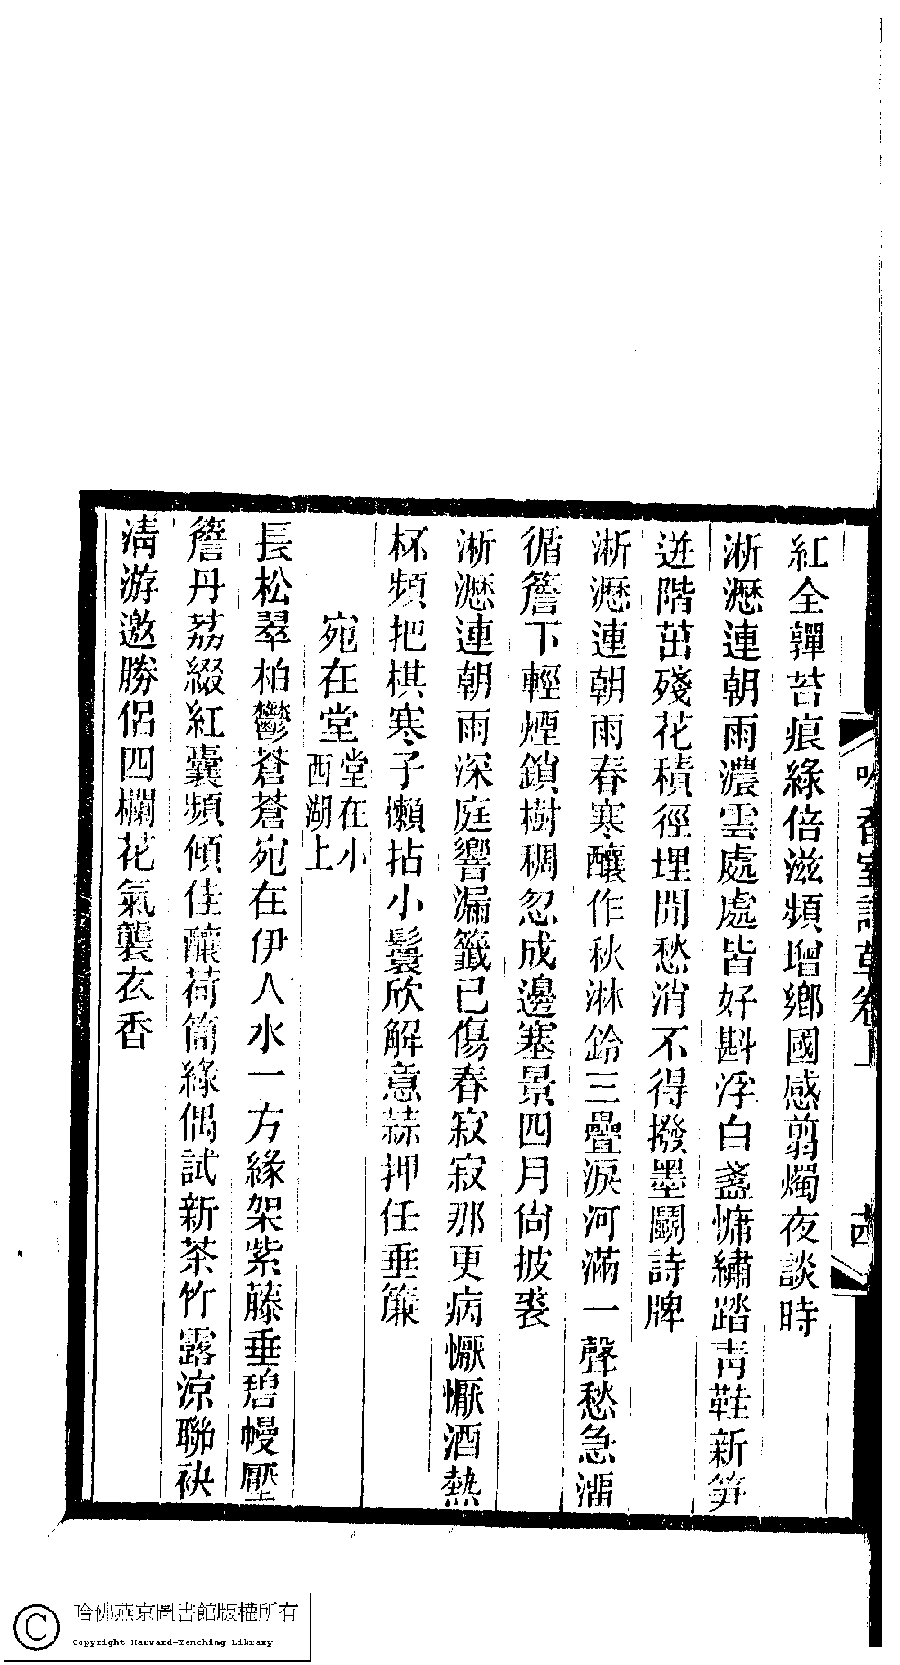 紅全嚲苔痕綠倍滋頻增鄉國感剪燭夜談時
淅瀝連朝雨濃雲處處皆好斟浮白盞慵繡踏靑鞋新筍
迸階茁殘花積徑埋閒愁消不得撥墨鬬詩牌
淅瀝連朝雨春寒釀作秋淋鈴三疊淚河滿一聲愁急溜
循簷下輕煙鎖樹稠忽成邊塞景四月尙披裘
淅瀝連朝雨深庭響漏籤已傷春寂寂那更病懨懨酒熱
杯頻把棋寒子懶拈小鬟欣解意蒜押任垂簾
宛在堂堂在小西湖上
長松翠柏鬱蒼蒼宛在伊人水一方緣架紫藤垂碧幔壓
簷丹荔綴紅囊頻傾佳釀荷筩綠偶試新茶竹露涼聯袂
淸游邀勝侶四欄花氣襲衣香
香室詩草卷上
哈佛燕京圖書館版權所有
Copyright Harvard-Yenching Library